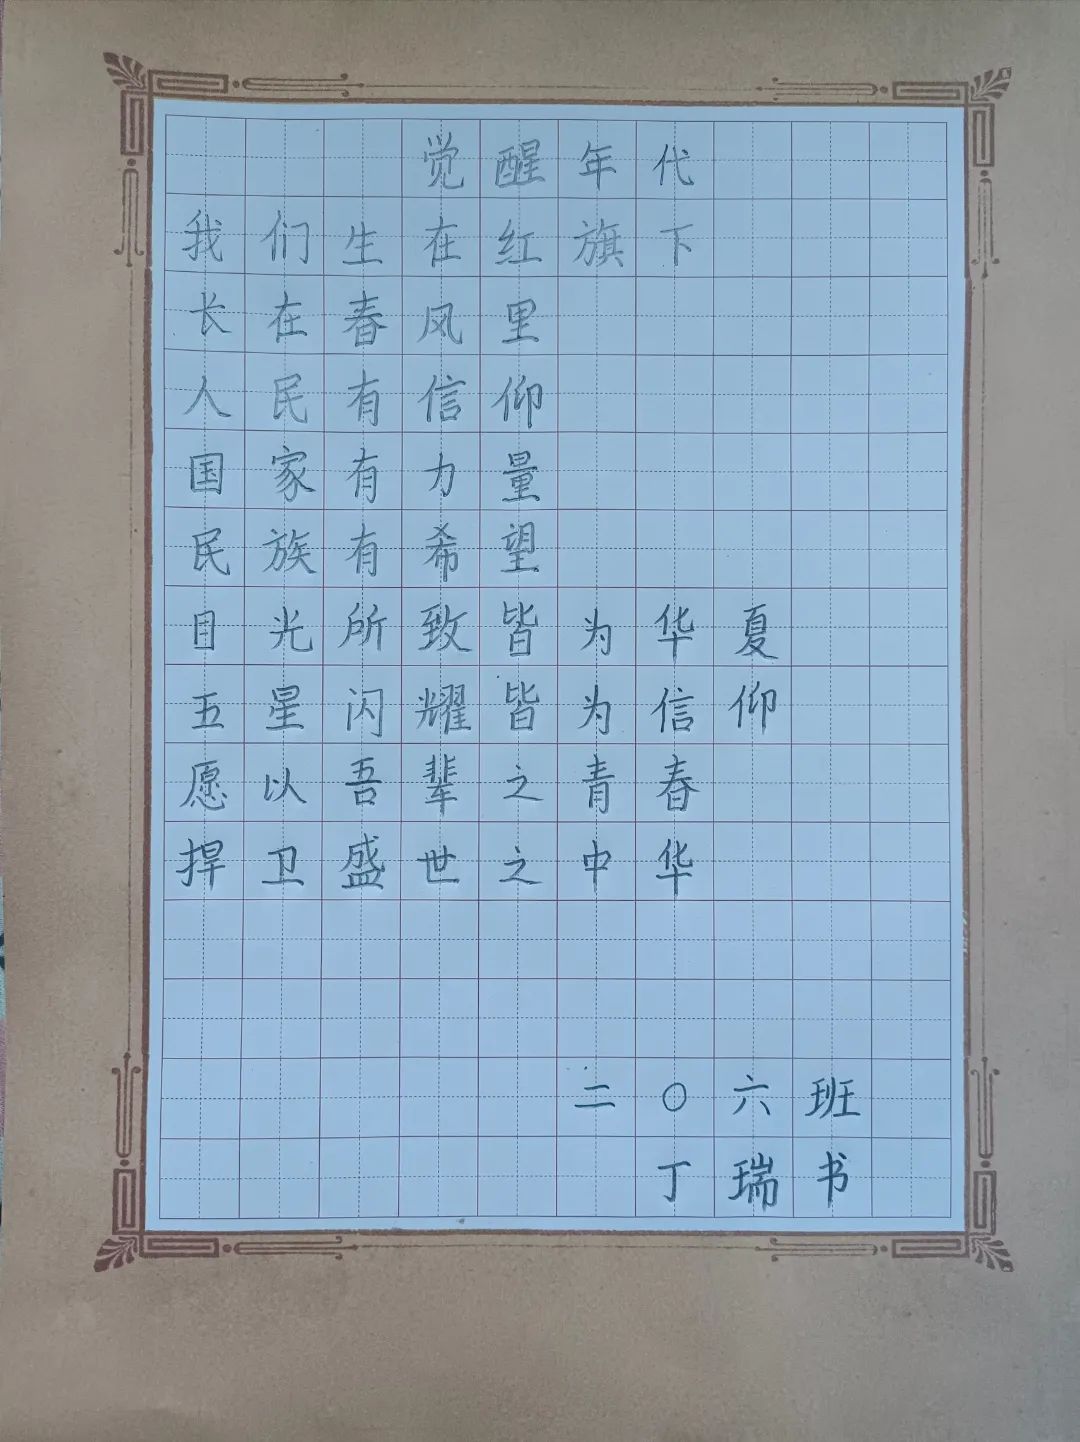 觉醒年代
我们生在红旗下
长在春风里
人民有信仰
国家有力量
民族有希望
目光所致皆为华夏
五星闪耀皆为信仰
愿以吾辈之青春
捍卫盛世之中华
二〇六班
丁瑞书